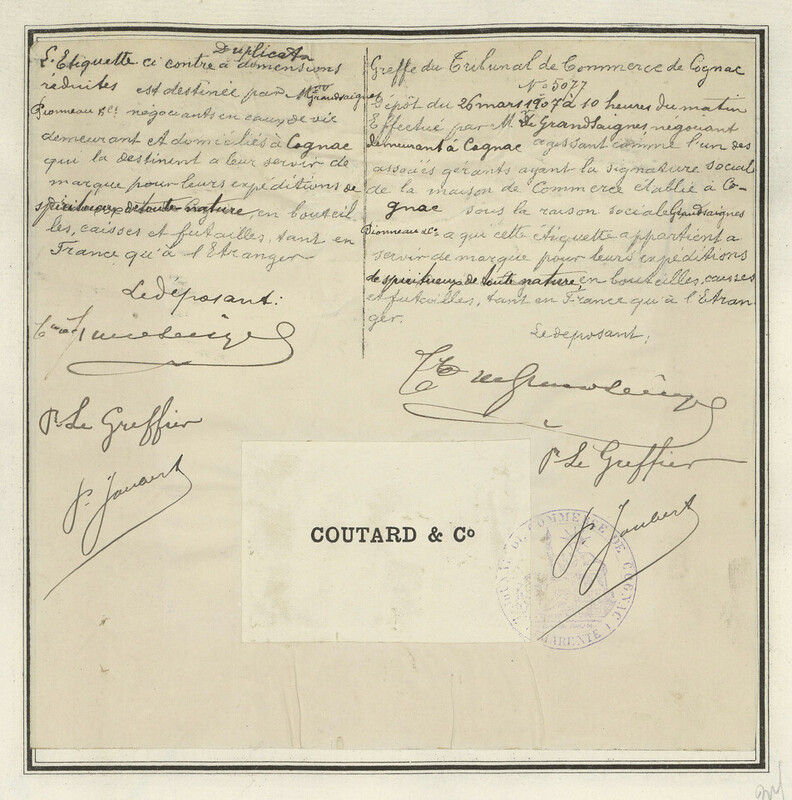 Duplicata
L'Etiquette ci contre à dimensions
réduites est destinée par M.rs Grandsaignes
Pionneau & Cie négociants en eaux de vie
demeurant et domiciliés à Cognac
qui la destinent a leur servir de
marque pour leurs expéditions de
spiritueux de toute nature, en bouteil
les, caisses et futailles, tant en
France qu'à l'Etranger
Le déposant:
Pr Le Greffier
Pr Joubert
Greffe du Tribunal de Commerce de Cognac
No 5077
Dépôt du 26 mars 1907 à 10 heures du matin
Effectué par M. de Grandsaignes, négociant
demeurant à Cognac agissant comme l'un des
associés gérants ayant la signature social
de la maison de Commerce etablie à Co-
gnac sous la raison sociale Grandsaignes
Pionneau & Cie a qui cette étiquette appartient a
servir de marque pour leurs expéditions
de spiritueux de toute nature, en bouteilles, caisses
et futailles, tant en France qu'à l'Etran-
ger.
Le déposant;
Pr Le Greffier
Pr Joubert
COUTARD & Co
TRIBUNAL DE COMMERCE DE COGNAC
CHARENTE